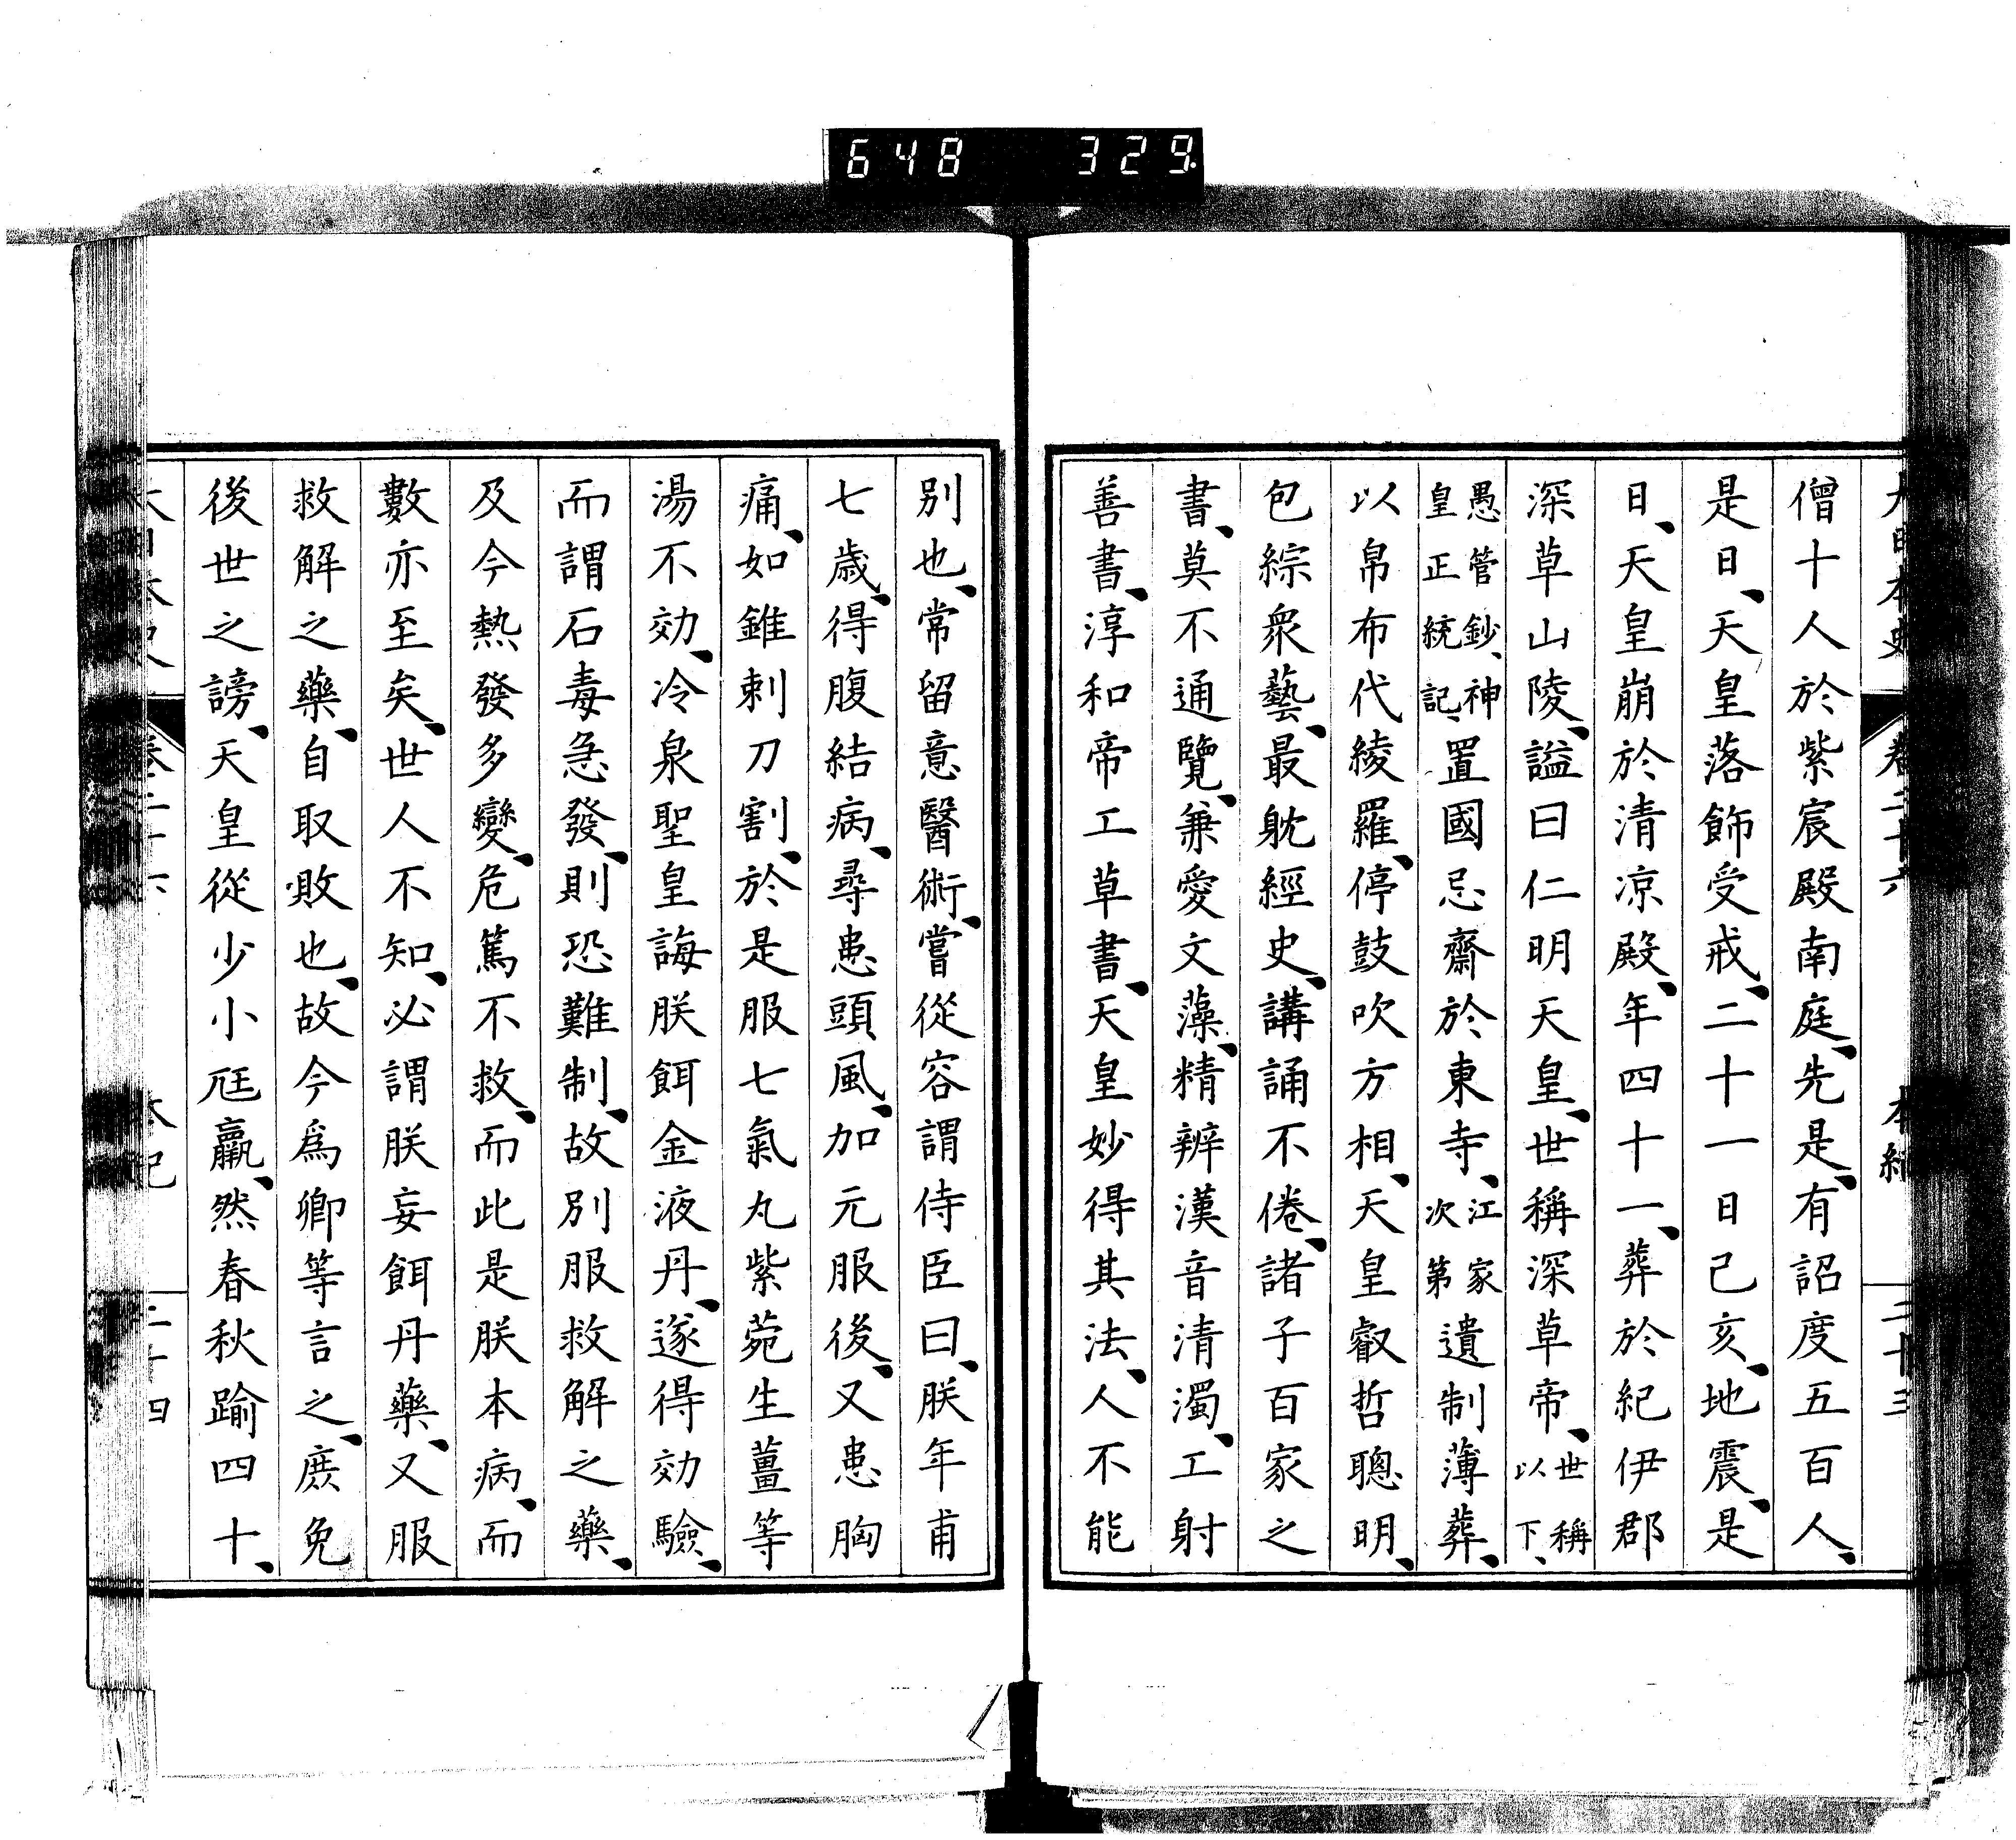 648 329
大日本史 卷二十六 本紀 二十三
僧十人於紫宸殿南庭、先是、有詔度五百人、
是日、天皇落飾受戒、二十一日己亥、地震、是
日、天皇崩於清凉殿、年四十一、葬於紀伊郡
深草山陵、謚曰仁明天皇、世稱深草帝、世稱以下、
愚管鈔、神皇正統記、置國忌齋於東寺、江家次第遺制薄葬、
以帛布代綾羅、停鼓吹方相、天皇叡哲聰明、
包綜衆藝、最躭經史、講誦不倦、諸子百家之
書、莫不通覽、兼愛文藻、精辨漢音清濁、工射
善書、淳和帝工草書、天皇妙得其法、人不能
別也、常留意醫術、嘗從容謂侍臣曰、朕年甫
七歲、得腹結病、尋患頭風、加元服後、又患胸
痛、如錐刺刀割、於是服七氣丸紫菀生薑等
湯不効、冷泉聖皇誨朕餌金液丹、遂得効驗、
而謂石毒急發、則恐難制、故別服救解之藥、
及今熱發多變、危篤不救、而此是朕本病、而
數亦至矣、世人不知、必謂朕妄餌丹藥、又服
救解之藥、自取敗也、故今爲卿等言之、庶免
後世之謗、天皇從少小尫羸、然春秋踰四十、